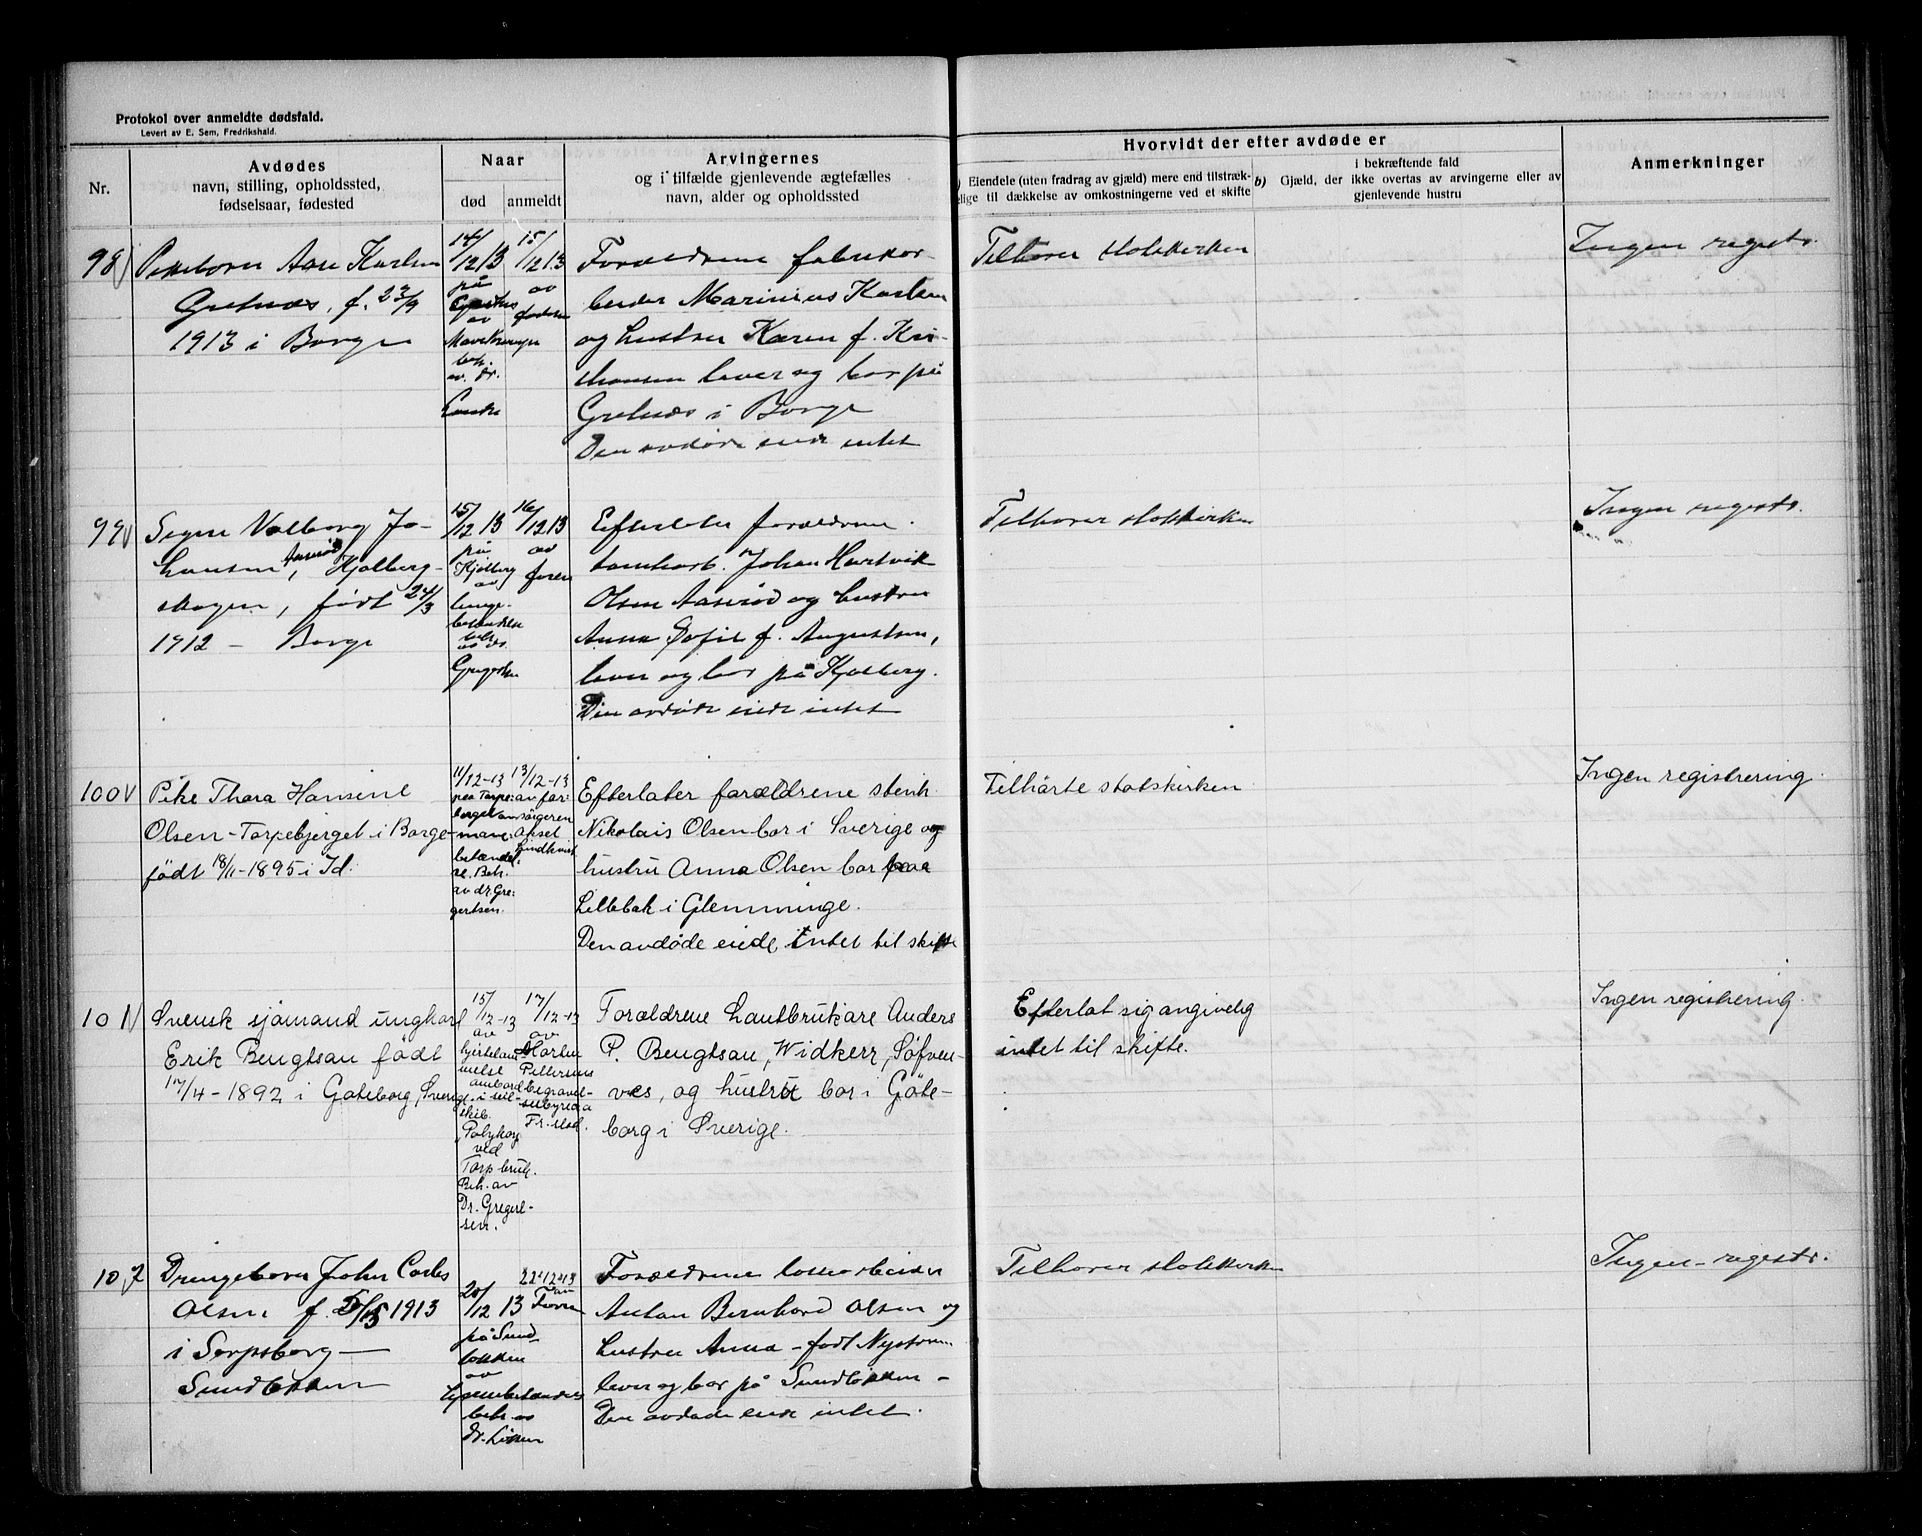 Protokol over anmeldte dødsfald.
Levert av E. Sem, Fredrikshald.
Nr.
Avdødes
navn, stilling, opholdssted,
fødselsaar, fødested
Naar
død
anmeldt
Arvingernes
og i tilfælde gjenlevende ægtefælles
navn, alder og opholdssted
Hvorvidt der efter avdøde er
) Eiendele (uten fradrag av gjæld) mere end tilstræk-
elige til dækkelse av omkostningerne ved et skifte
b) Gjæld, der i bekræftende fald
ikke overtas av arvingerne eller av
gjenlevende hustru
Anmerkninger
98
Pikebarn Aase Karlsen
Grelnæs, f. 23/9
1913 i Borge
14/12 13
på
av
Mavekrampe
beh.
av dr.
15/12 13
av
faderen
Forældrene fabrikar-
beider Marinius Karlsen
og hustru Karen f. Kri-
stiansen lever og bor på
Grelnæs i Borge
Den avdøde eide intet
Tilhører statskirken
Ingen registr.
99
Signe Valborg Jo-
hansen, Aaserød Kjølberg-
skogen, født 24/3
1912 - Borge
15/12 13
på
Kjølberg
av
lunge-
betændelse
beh.
av dr.
Gregertsen
16/12 13
av
faren
Efterlater forældrene
tomtearb. Johan Hartvik
Olsen Aaserød og hustru
Anna Sofie f. Augustsen,
lever og bor på Kjølberg.
Den avdøde eide intet
Tilhører statskirken
Ingen registr.
100
Pike Thora Hansine
Olsen - Torpebjerget i Borge-
født 18/11-1895 i Id.
11/12-13
paa Torpe-
berget av
mave-
betændel-
se. Beh.
av dr. Gre-
gertsen.
13/12-13
av for-
sørgeren
Aksel
Lindkvist
Efterlater forældrene stenh.
Nikolais Olsen bor i Sverige og
hustru Anna Olsen bor paa
Lillebak i Glemminge.
Den avdøde eiede intet til skifte
Tilhørte statskirken
Ingen registrering.
101
Svensk sjømand ungkarl
Erik Bengtsan født
17/4-1892 i Gøteborg, Sverige
15/12-13
av
hjertelam-
melse
ombord
i seil-
skib.
"Polykarp
ved
Torp bruk.
Beh. av
Dr. Gregert-
sen.
17/12-13
av
Martin
Pettersens
begravel-
sesbyraa
Fr.stad.
Forældrene Lantbrukare Anders
P. Bengtsan, Widkerr, Søfven-
væs, og hustru bor i Gøte-
borg i Sverige.
Efterlat sig angivelig
intet til skifte.
Ingen registrering.
102
Drengebarn John Carlos
Olsen f. 5/5 1913
i Sarpsborg -
Sundløkken
20/12 13
på Sund
løkken
av
beh. av
dr. Løken
22-12-13
av
Faren
Forældrene løssearbeider
Anton Bernhard Olsen og
hustru Anna - født Nystrøm
lever og bor på Sundløkken -
Den avdøde eide intet.
Tilhører statskirken
Ingen registr.